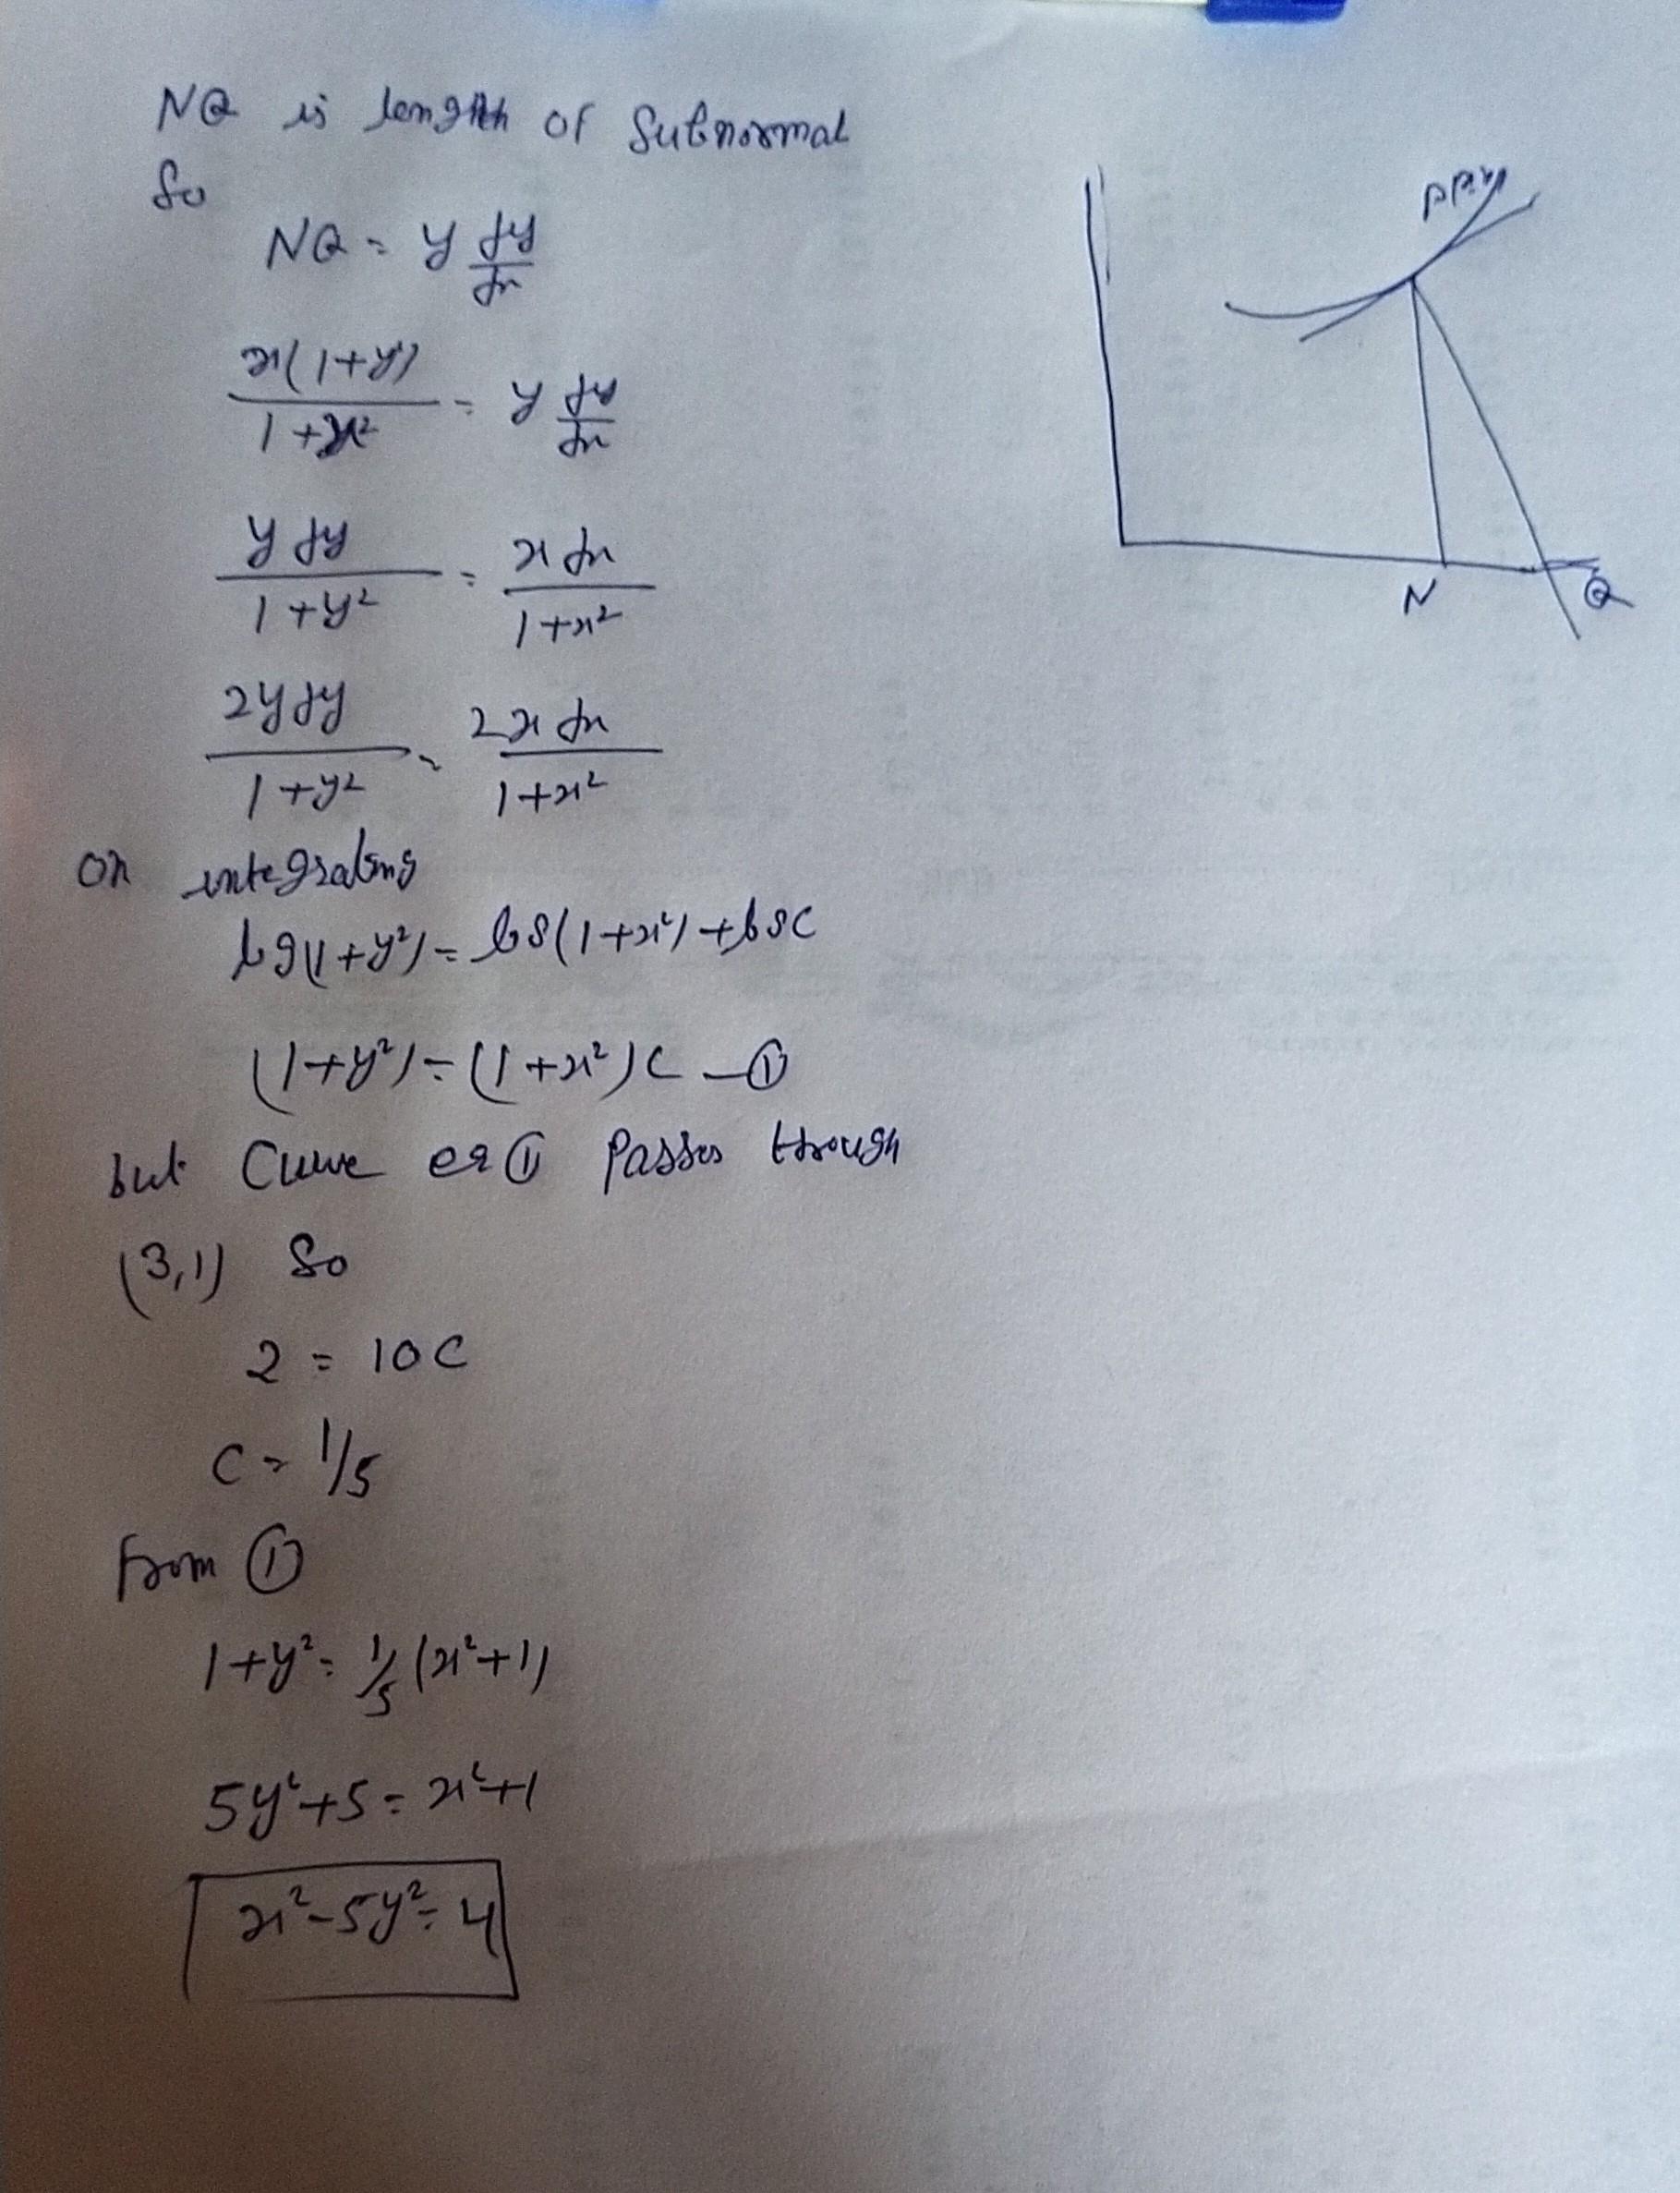 NQ is length of Subnormal
So
NQ = y dy/dx
x(1+y²)/1+x² = y dy/dx
y dy/1+y² = x dx/1+x²
2y dy/1+y² = 2x dx/1+x²
on integrating
log(1+y²) = log(1+x²) + log C
(1+y²) = (1+x²)C —①
but Curve eq ① Passes through
(3,1) So
2 = 10C
C = 1/5
From ①
1+y² = 1/5 (x²+1)
5y²+5 = x²+1
x²-5y² = 4
N
Q